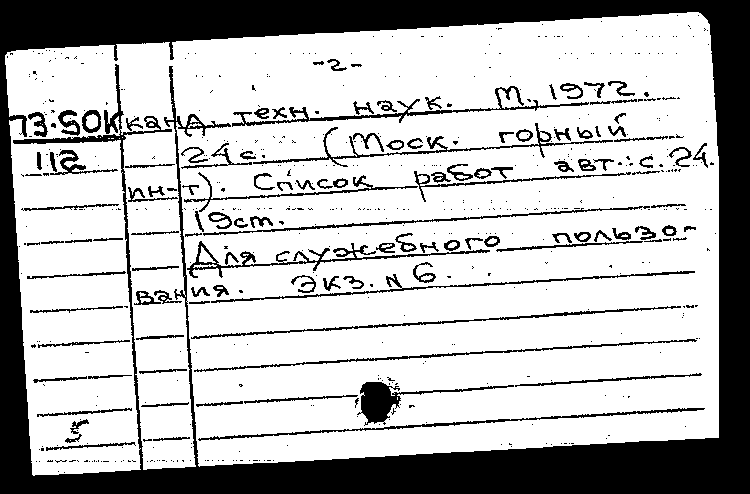 -2-
73-50К канд. техн. наук. М., 1972.
112 24 с. (Моск. горный
ин-т). Список работ авт.: с. 24.
19ст.
Для служебного пользо-
вания. Экз. N 6.
5